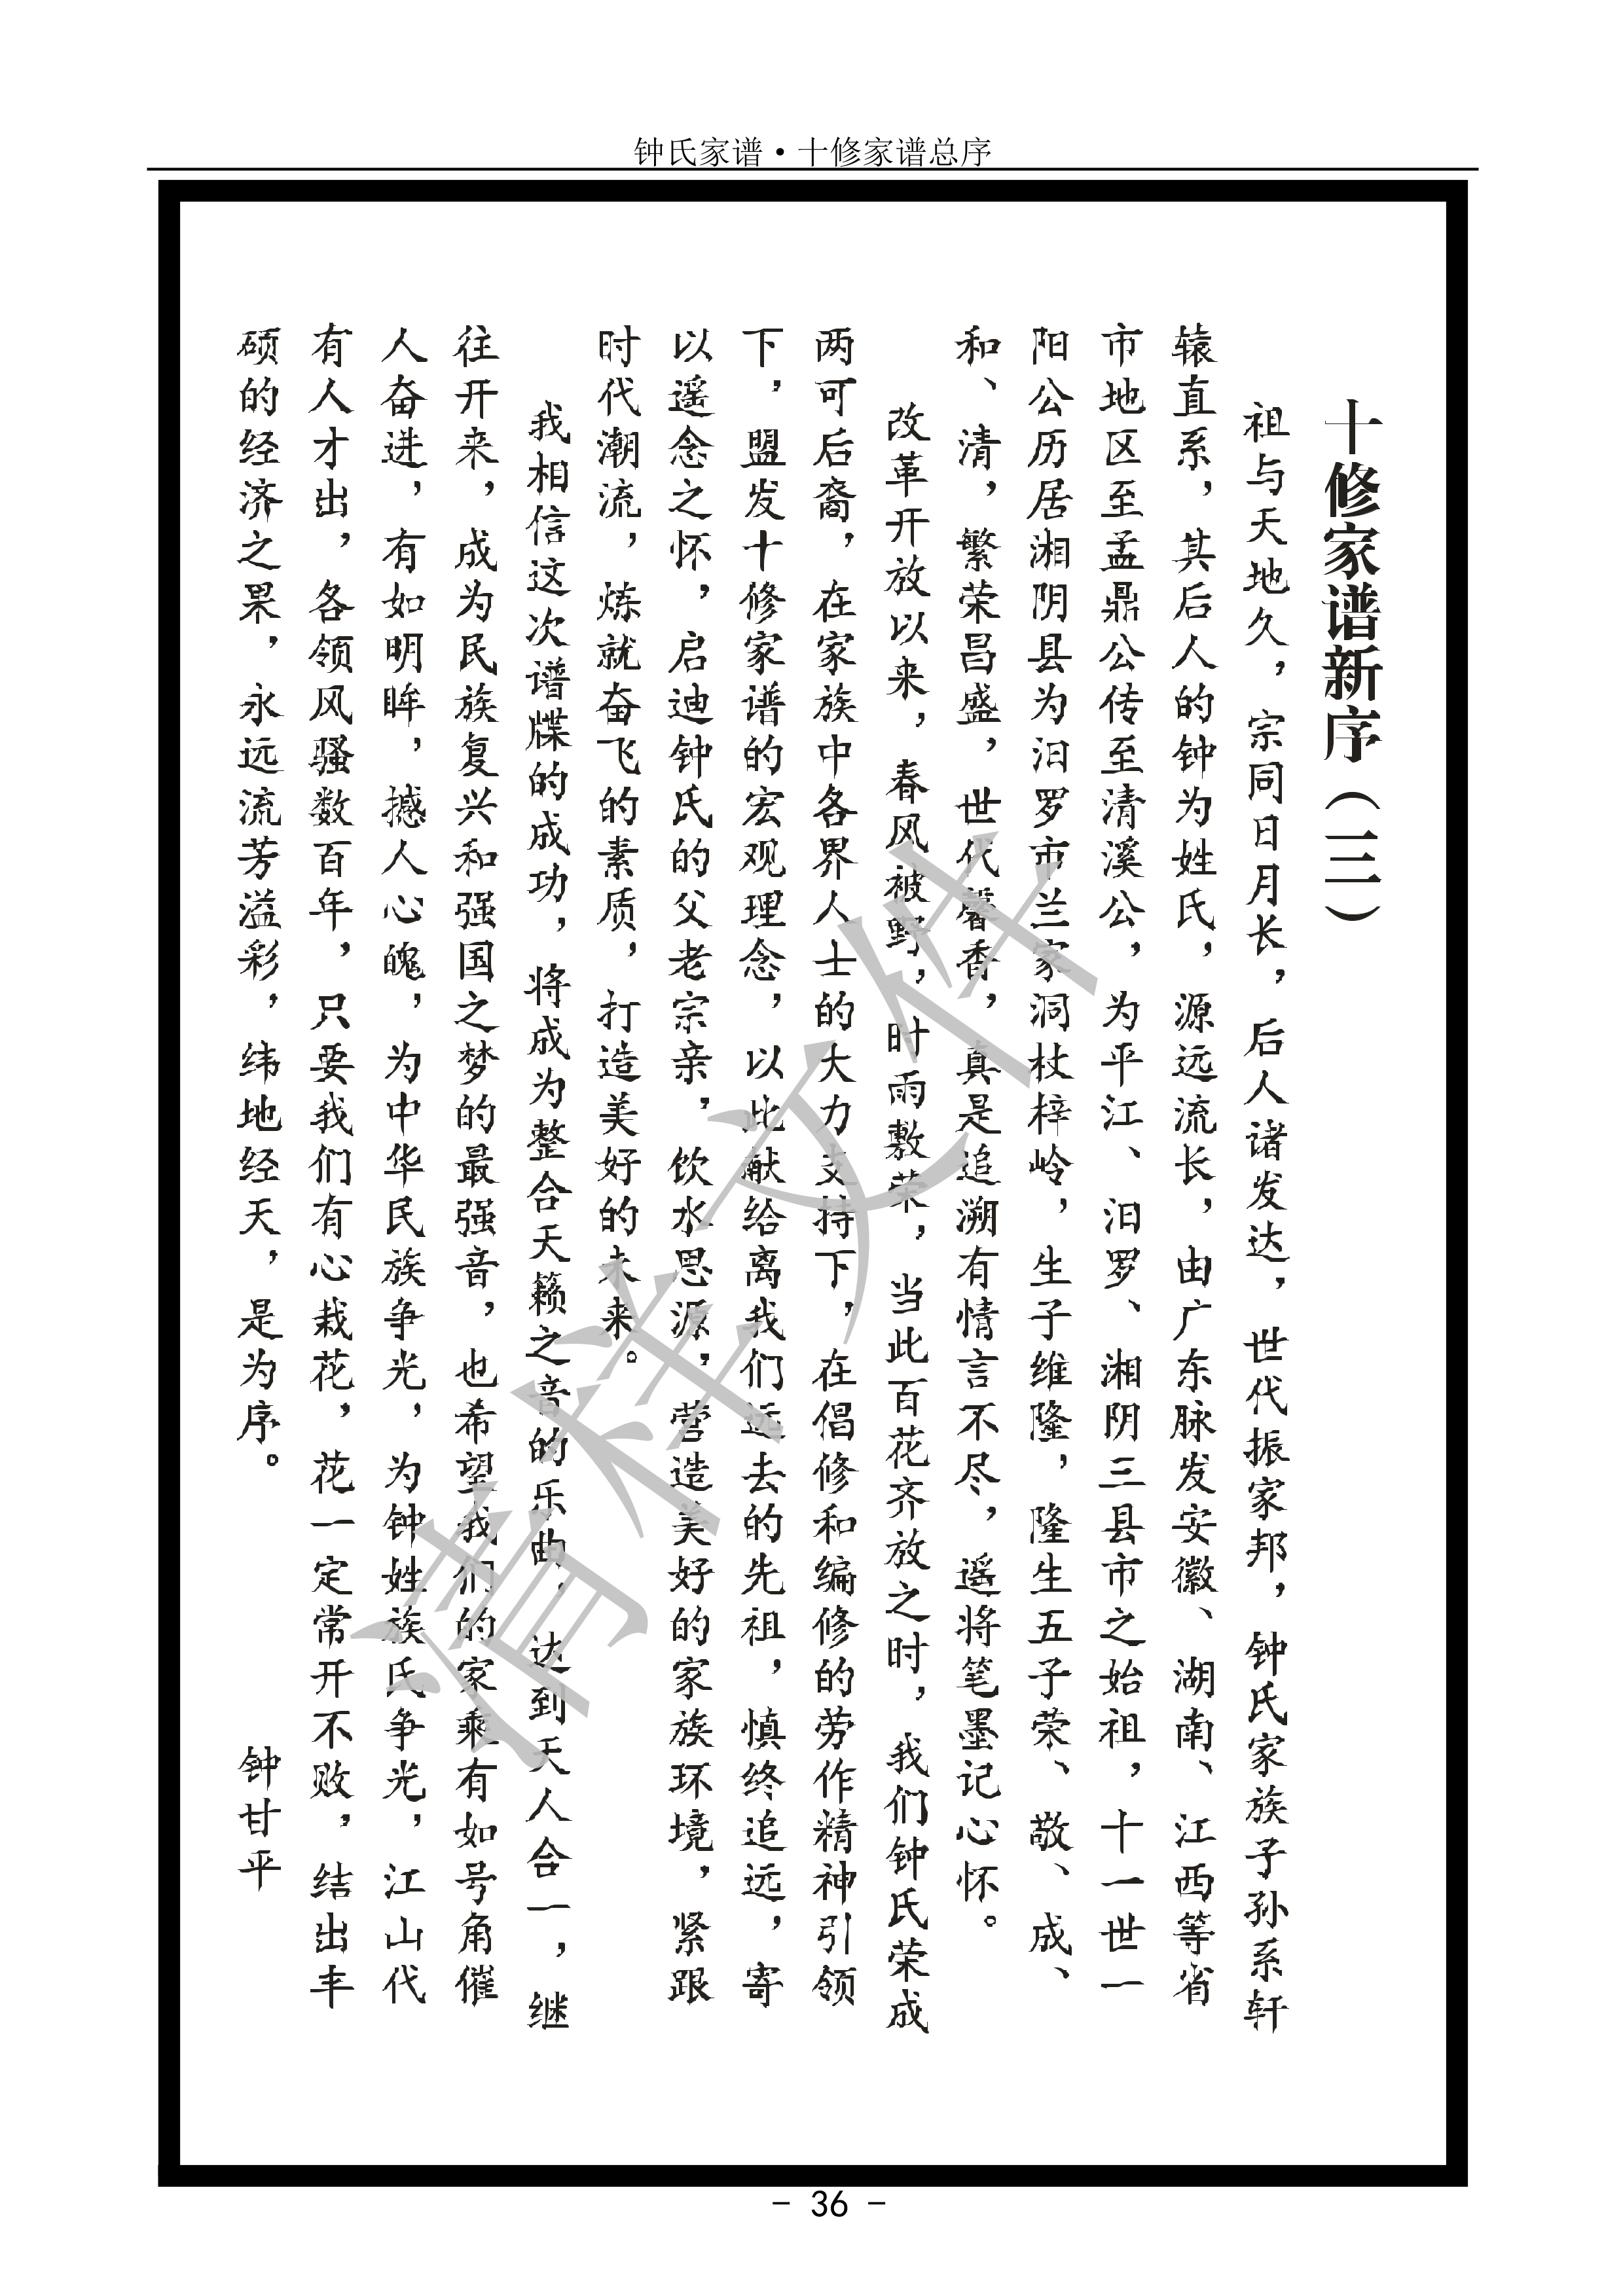 钟氏家谱·十修家谱总序
十修家谱新序（三）
祖与天地久，宗同日月长，后人诸发达，世代振家邦，钟氏家族子孙系轩
辕直系，其后人的钟为姓氏，源远流长，由广东脉发安徽、湖南、江西等省
市地区至孟鼎公传至清溪公，为平江、汨罗、湘阴三县市之始祖，十一世一
阳公历居湘阴县为汨罗市兰家洞杖梓岭，生子维隆，隆生五子荣、敬、成、
和、清，繁荣昌盛，世代馨香，真是追溯有情言不尽，遥将笔墨记心怀。
改革开放以来，春风被野，时雨敷荣，当此百花齐放之时，我们钟氏荣成
两可后裔，在家族中各界人士的大力支持下，在倡修和编修的劳作精神引领
下，盟发十修家谱的宏观理念，以此献给离我们远去的先祖，慎终追远，寄
以遥念之怀，启迪钟氏的父老宗亲，饮水思源，营造美好的家族环境，紧跟
时代潮流，炼就奋飞的素质，打造美好的未来。
我相信这次谱牒的成功，将成为整合天籁之音的乐曲，达到天人合一，继
往开来，成为民族复兴和强国之梦的最强音，也希望我们的家乘有如号角催
人奋进，有如明眸，撼人心魄，为中华民族争光，为钟姓族氏争光，江山代
有人才出，各领风骚数百年，只要我们有心栽花，花一定常开不败，结出丰
硕的经济之果，永远流芳溢彩，纬地经天，是为序。
钟甘平
清样文件
- 36 -